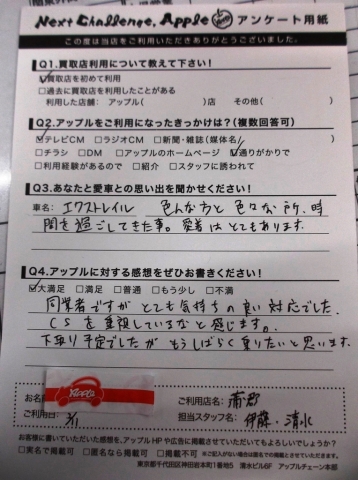 Next Challenge, Apple アンケート用紙
この度は当店をご利用いただきありがとうございました。
Q1.買取店利用について教えて下さい!
☑買取店を初めて利用
□過去に買取店を利用したことがある
利用した店舗: アップル( )店 その他( )
Q2.アップルをご利用になったきっかけは?(複数回答可)
☑テレビCM □ラジオCM □新聞・雑誌(媒体名/ )
□チラシ □DM □アップルのホームページ ☑通りがかりで
□利用経験があるので □紹介 □スタッフに誘われて
Q3.あなたと愛車との思い出を聞かせてください!
車名: エクストレイル 色んな方と色々な所、時
間を過ごしてきた事。愛着はとてもあります。
Q4.アップルに対する感想をぜひお書きください!
☑大満足 □満足 □普通 □もう少し □不満
同業者ですがとても気持ちの良い対応でした。
CSを重視しているなと感じます。
下取り予定でしたがもうしばらく乗りたいと思います。
お名 Apple ご利用店名: 蒲郡
ご利用日: 3/1 担当スタッフ名: 伊藤・清水
お客様に書いていただいた感想を、アップルHPや広告に掲載させていただいてもよろしいでしょうか?
□実名で掲載可 □匿名なら掲載可 □掲載不可 ※ご記入がない場合は匿名での掲載とさせていただきます。
東京都千代田区神田岩本町1番地5 清水ビル6F アップルチェーン本部